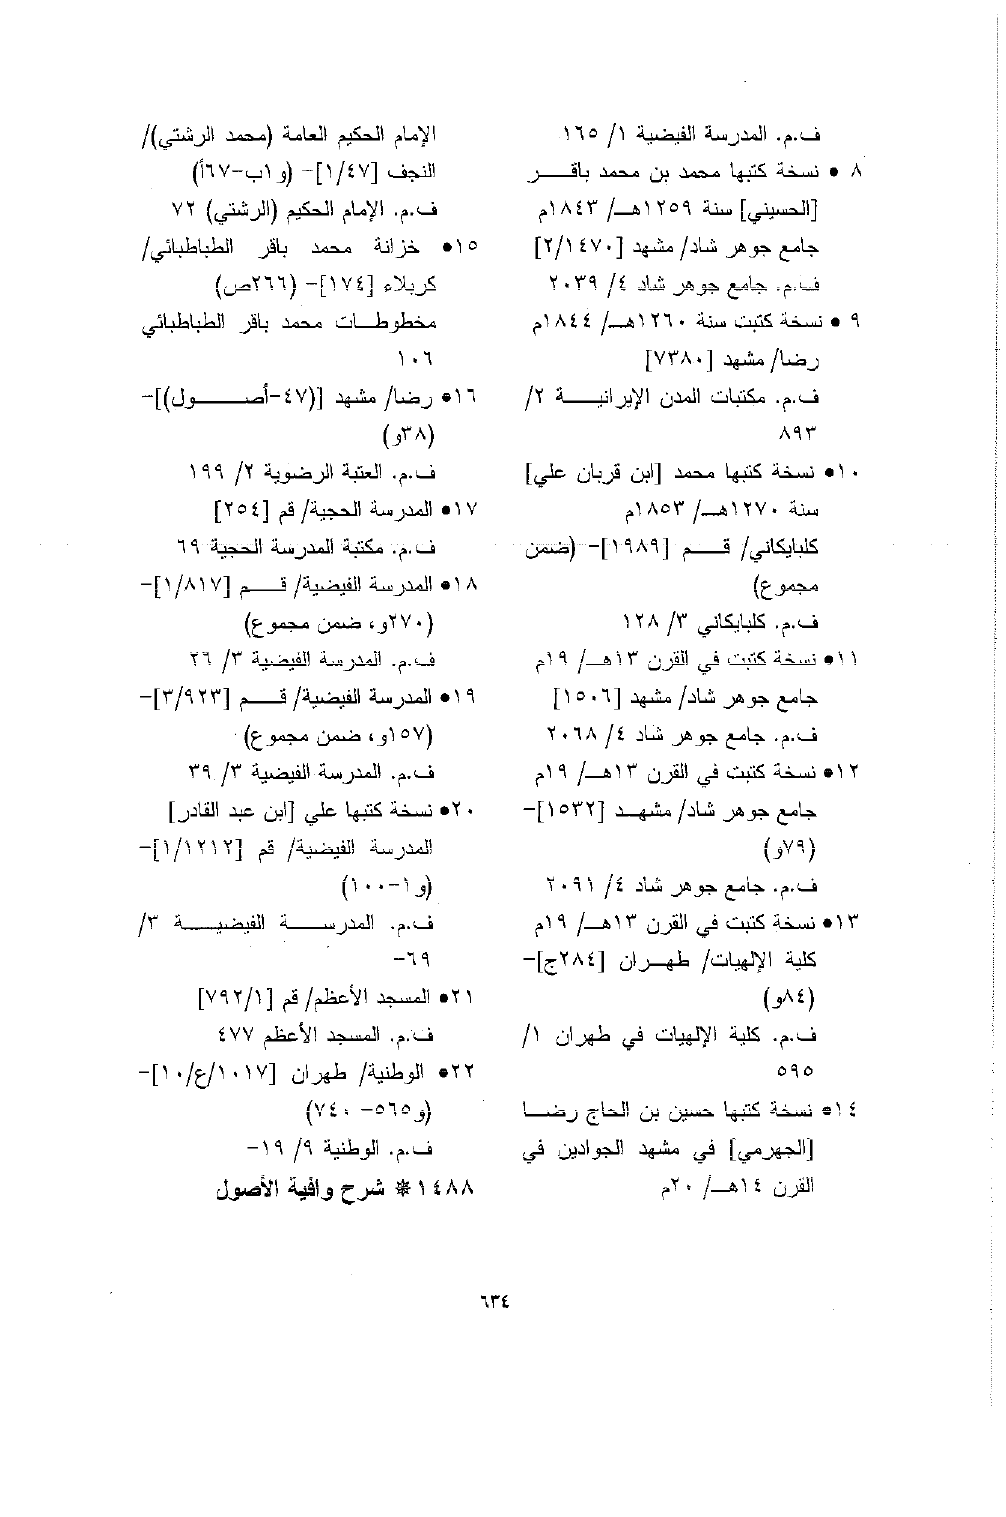 ف.م. المدرسة الفيضية ١/ ١٦٥
٨ • نسخة كتبها محمد بن محمد باقــر
[الحسيني] سنة ١٢٥٩هـ/ ١٨٤٣م
جامع جوهر شاد/ مشهد [٢/١٤٧٠]
ف.م. جامع جوهر شاد ٤/ ٢٠٣٩
٩ • نسخة كتبت سنة ١٢٦٠هـ/ ١٨٤٤م
رضا/ مشهد [٧٣٨٠]
ف.م. مكتبات المدن الإيرانيــة ٢/
٨٩٣
١٠• نسخة كتبها محمد [ابن قربان علي]
سنة ١٢٧٠هـ/ ١٨٥٣م
كلبايكاني/ قــم [١٩٨٩]- (ضمن
مجموع)
ف.م. كلبايكاني ٣/ ١٢٨
١١• نسخة كتبت في القرن ١٣هـ/ ١٩م
جامع جوهر شاد/ مشهد [١٥٠٦]
ف.م. جامع جوهر شاد ٤/ ٢٠٦٨
١٢• نسخة كتبت في القرن ١٣هـ/ ١٩م
جامع جوهر شاد/ مشهـد [١٥٣٢]-
(٧٩و)
ف.م. جامع جوهر شاد ٤/ ٢٠٩١
١٣• نسخة كتبت في القرن ١٣هـ/ ١٩م
كلية الإلهيات/ طهـران [٢٨٤ج]-
(٨٤و)
ف.م. كلية الإلهيات في طهران ١/
٥٩٥
١٤• نسخة كتبها حسين بن الحاج رضــا
[الجهرمي] في مشهد الجوادين في
القرن ١٤هـ/ ٢٠م
الإمام الحكيم العامة (محمد الرشتي)/
النجف [١/٤٧]- (و١ب-٦٧أ)
ف.م. الإمام الحكيم (الرشتي) ٧٢
١٥• خزانة محمد باقر الطباطبائي/
كربلاء [١٧٤]- (٢٦٦ص)
مخطوطـات محمد باقر الطباطبائي
١٠٦
١٦• رضا/ مشهد [(٤٧-أصــول)]-
(٣٨و)
ف.م. العتبة الرضوية ٢/ ١٩٩
١٧• المدرسة الحجية/ قم [٢٥٤]
ف.م. مكتبة المدرسة الحجية ٦٩
١٨• المدرسة الفيضية/ قــم [١/٨١٧]-
(٢٧٠و، ضمن مجموع)
ف.م. المدرسة الفيضية ٣/ ٢٦
١٩• المدرسة الفيضية/ قــم [٣/٩٢٣]-
(١٥٧و، ضمن مجموع)
ف.م. المدرسة الفيضية ٣/ ٣٩
٢٠• نسخة كتبها علي [ابن عبد القادر]
المدرسة الفيضية/ قم [١/١٢١٢]-
(و١-١٠٠)
ف.م. المدرســة الفيضيــة ٣/
٦٩-
٢١• المسجد الأعظم/ قم [٧٩٢/١]
ف.م. المسجد الأعظم ٤٧٧
٢٢• الوطنية/ طهران [١٠١٧/ع/١٠]-
(و٥٦٥- ٧٤٠)
ف.م. الوطنية ٩/ ١٩-
١٤٨٨ * شرح وافية الأصول
٦٣٤